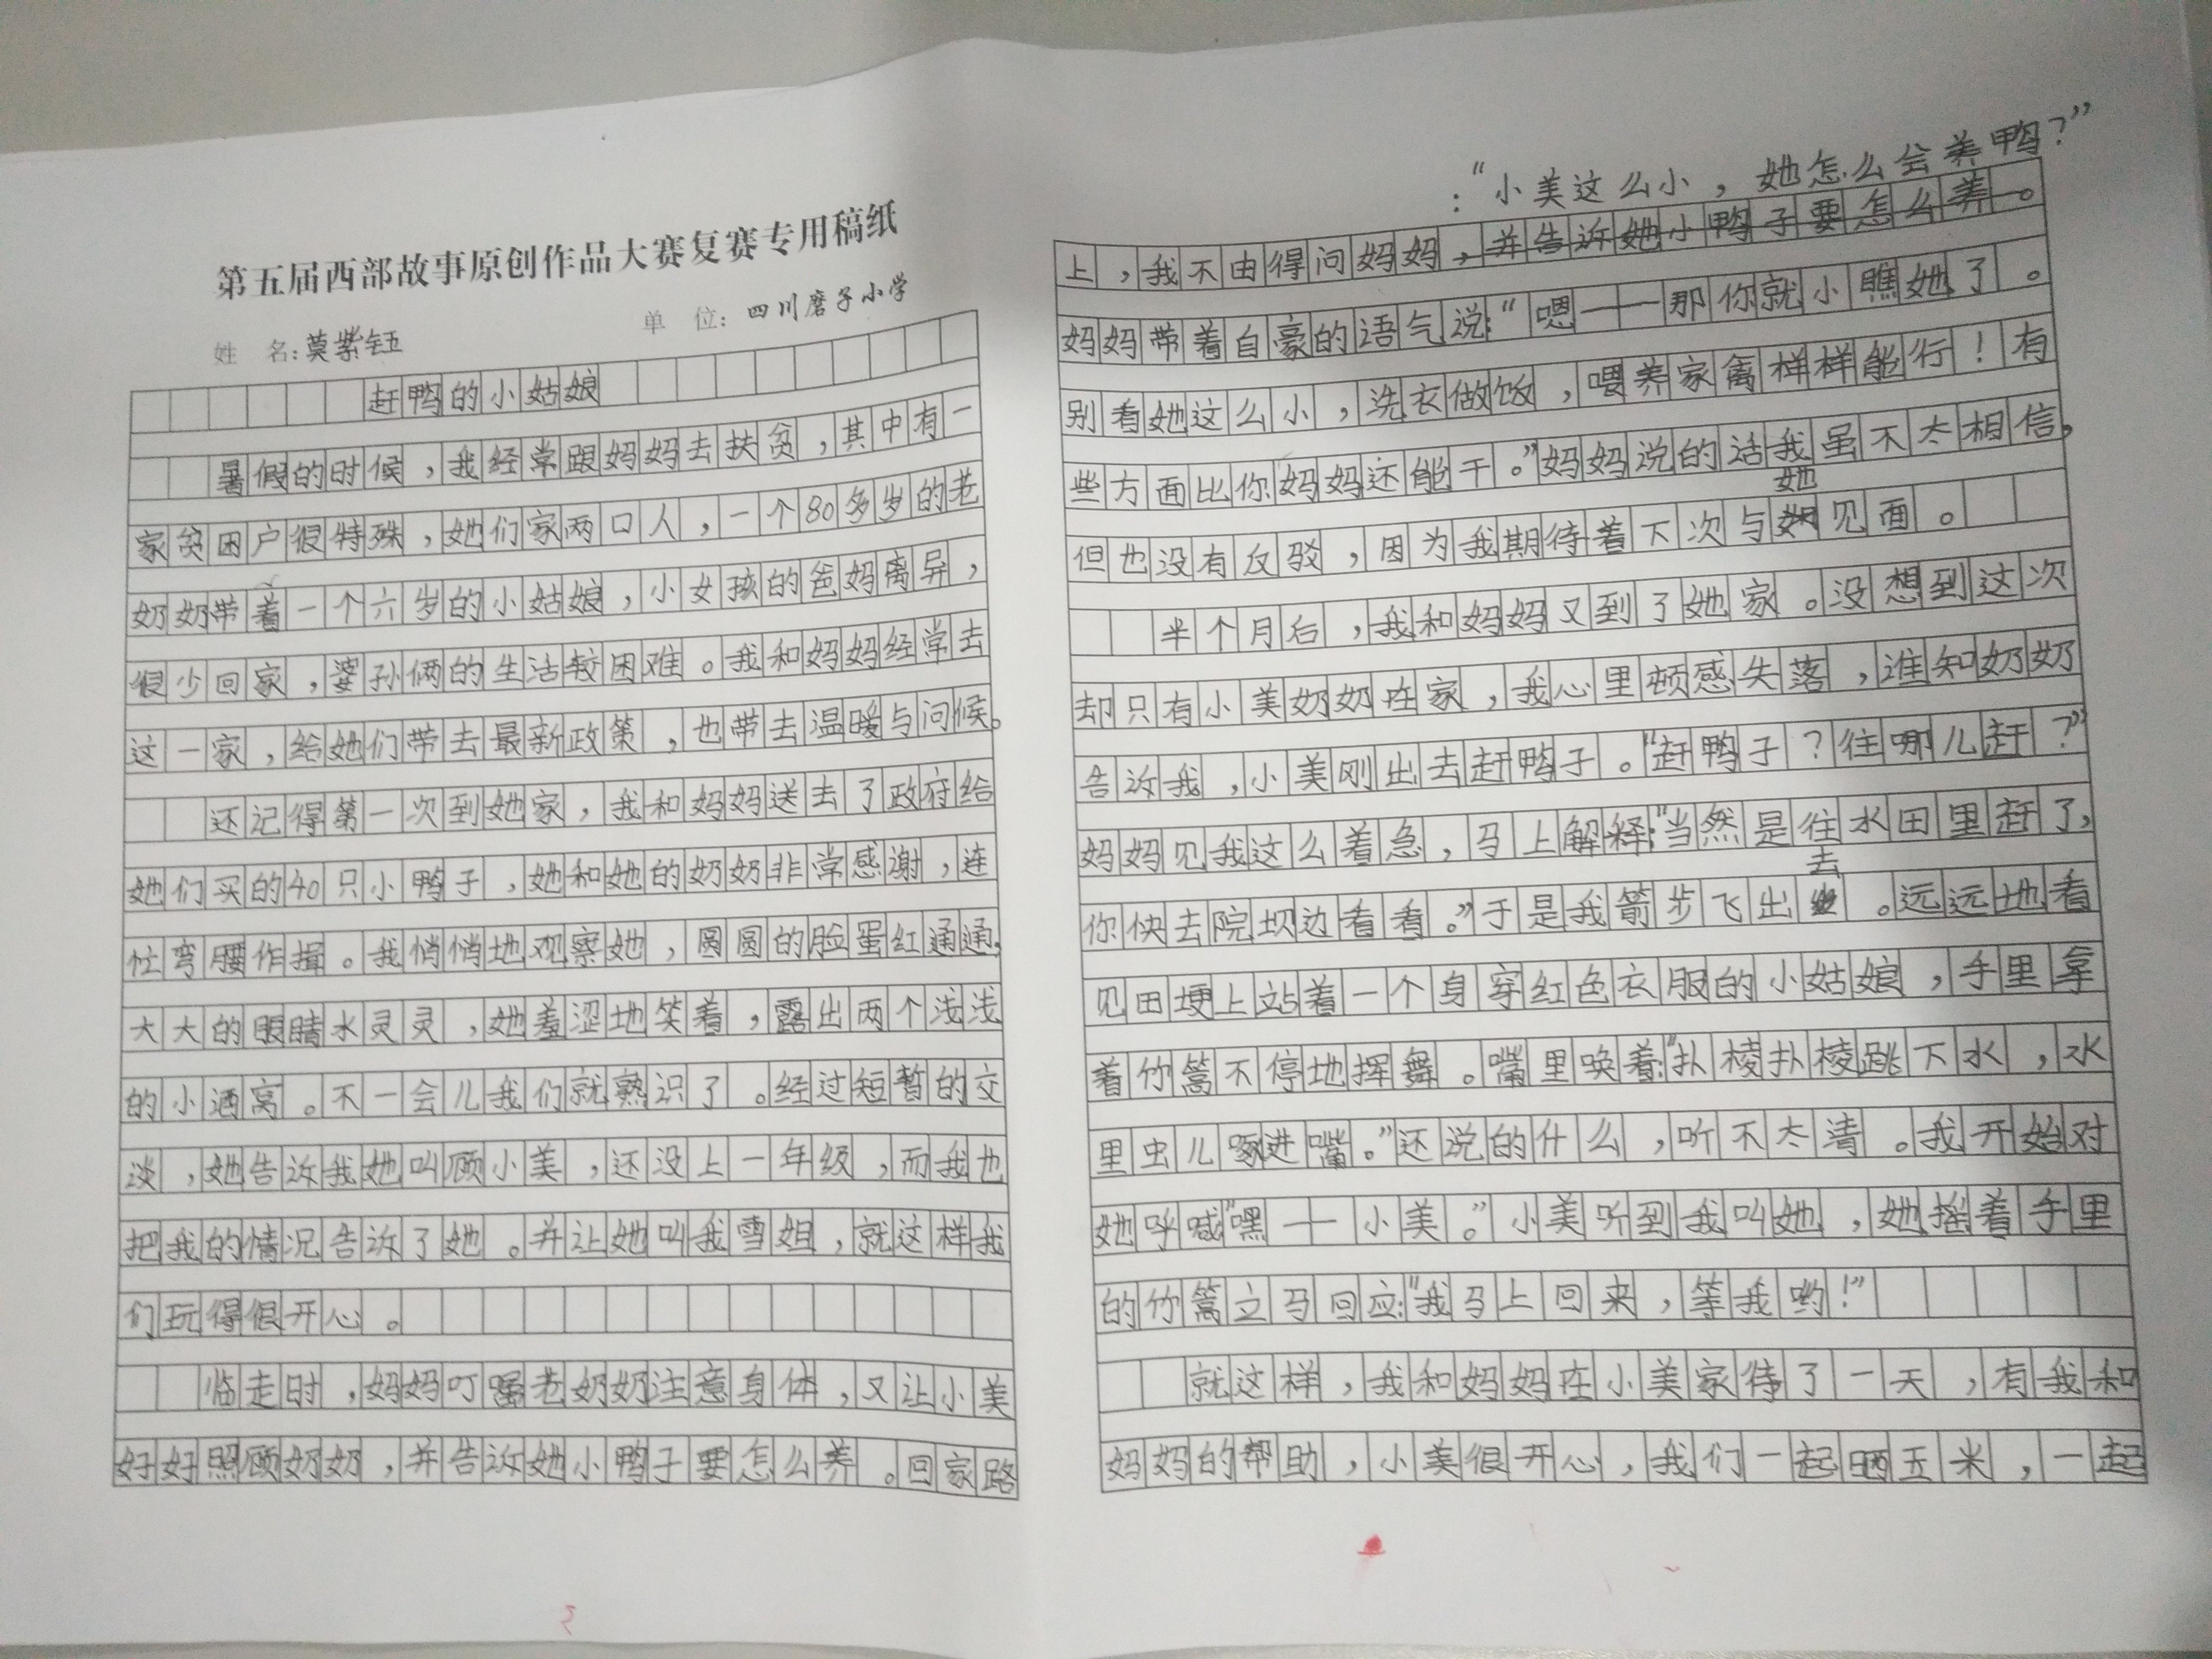 第五届西部故事原创作品大赛复赛专用稿纸
姓 名：莫紫钰 单 位：四川磨子小学
赶鸭的小姑娘
暑假的时候，我经常跟妈妈去扶贫，其中有一
家贫困户很特殊，她们家两口人，一个80多岁的老
奶奶带着一个六岁的小姑娘，小女孩的爸妈离异，
很少回家，婆孙俩的生活较困难。我和妈妈经常去
这一家，给她们带去最新政策，也带去温暖与问候。
还记得第一次到她家，我和妈妈送去了政府给
她们买的40只小鸭子，她和她的奶奶非常感谢，连
忙弯腰作揖。我悄悄地观察她，圆圆的脸蛋红通通，
大大的眼睛水灵灵，她羞涩地笑着，露出两个浅浅
的小酒窝。不一会儿我们就熟识了。经过短暂的交
谈，她告诉我她叫顾小美，还没上一年级，而我也
把我的情况告诉了她。并让她叫我雪姐，就这样我
们玩得很开心。
临走时，妈妈叮嘱老奶奶注意身体，又让小美
好好照顾奶奶，并告诉她小鸭子要怎么养。回家路
：“小美这么小，她怎么会养鸭？”
上，我不由得问妈妈，并告诉她小鸭子要怎么养。
妈妈带着自豪的语气说：“嗯——那你就小瞧她了。
别看她这么小，洗衣做饭，喂养家禽样样能行！有
些方面比你妈妈还能干。”妈妈说的话我虽不太相信，
但也没有反驳，因为我期待着下次与她见面。
半个月后，我和妈妈又到了她家。没想到这次
却只有小美奶奶在家，我心里顿感失落，谁知奶奶
告诉我，小美刚出去赶鸭子。“赶鸭子？往哪儿赶？”
妈妈见我这么着急，马上解释：“当然是往水田里赶了，
你快去院坝边看看。”于是我箭步飞出去。远远地看
见田埂上站着一个身穿红色衣服的小姑娘，手里拿
着竹篙不停地挥舞。嘴里唤着：“扑棱扑棱跳下水，水
里虫儿啄进嘴。”还说的什么，听不太清。我开始对
她呼喊“嘿——小美。”小美听到我叫她，她摇着手里
的竹篙立马回应：“我马上回来，等我哟！”
就这样，我和妈妈在小美家待了一天，有我和
妈妈的帮助，小美很开心，我们一起晒玉米，一起